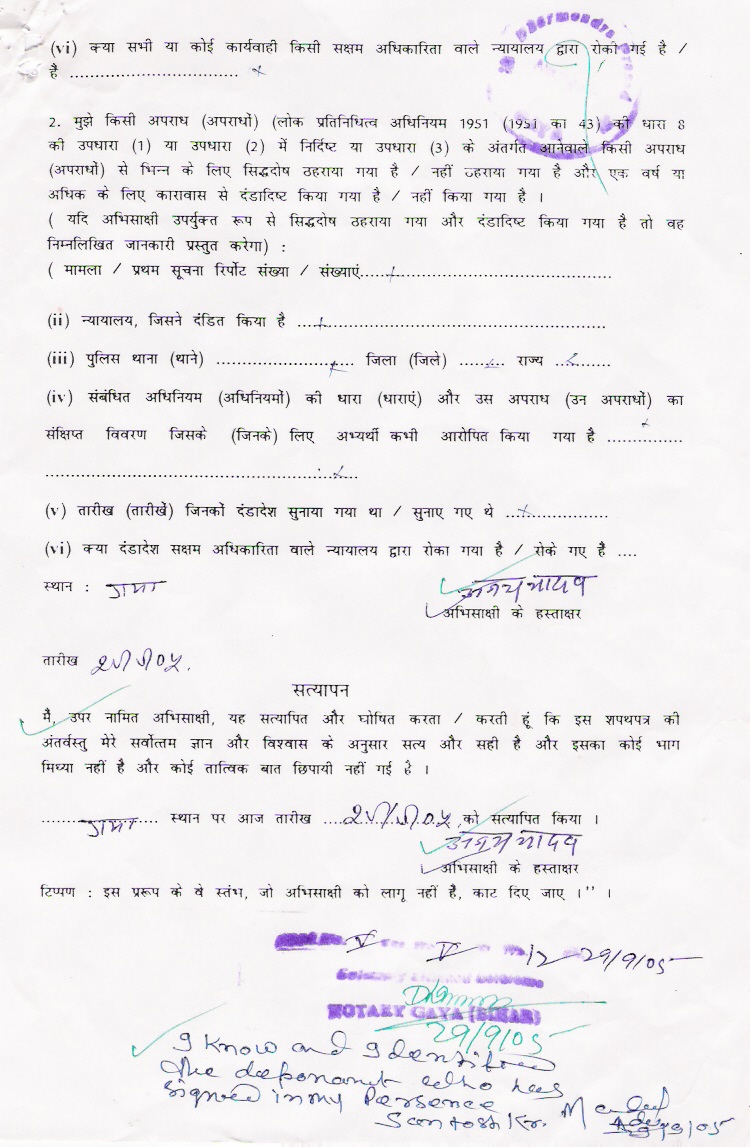 (vi) क्या सभी या कोई कार्यवाही किसी सक्षम अधिकारिता वाले न्यायालय द्वारा रोकी गई है /
है ................................ x
2. मुझे किसी अपराध (अपराधों) (लोक प्रतिनिधित्व अधिनियम 1951 (1951 का 43) की धारा 8
की उपधारा (1) या उपधारा (2) में निर्दिष्ट या उपधारा (3) के अंतर्गत आनेवाले किसी अपराध
(अपराधों) से भिन्न के लिए सिद्धदोष ठहराया गया है / नहीं ठहराया गया है और एक वर्ष या
अधिक के लिए कारावास से दंडादिष्ट किया गया है / नहीं किया गया है ।
( यदि अभिसाक्षी उपर्युक्त रूप से सिद्धदोष ठहराया गया और दंडादिष्ट किया गया है तो वह
निम्नलिखित जानकारी प्रस्तुत करेगा) :
( मामला / प्रथम सूचना रिर्पोट संख्या / संख्याएं......x..........................................
(ii) न्यायालय, जिसने दंडित किया है ....x......................................................
(iii) पुलिस थाना (थाने) ..........................x जिला (जिले) ......x... राज्य ...x.......
(iv) संबंधित अधिनियम (अधिनियमों) की धारा (धाराएं) और उस अपराध (उन अपराधों) का
संक्षिप्त विवरण जिसके (जिनके) लिए अभ्यर्थी कभी आरोपित किया गया है .......x........
.....................................................x...
(v) तारीख (तारीखें) जिनको दंडादेश सुनाया गया था / सुनाए गए थे ...x................
(vi) क्या दंडादेश सक्षम अधिकारिता वाले न्यायालय द्वारा रोका गया है / रोके गए है ....
स्थान : गया
यादव
अभिसाक्षी के हस्ताक्षर
तारीख
सत्यापन
मैं, उपर नामित अभिसाक्षी, यह सत्यापित और घोषित करता / करती हूं कि इस शपथपत्र की
अंतर्वस्तु मेरे सर्वोत्तम ज्ञान और विश्वास के अनुसार सत्य और सही है और इसका कोई भाग
मिथ्या नहीं है और कोई तात्विक बात छिपायी नहीं गई है ।
गया स्थान पर आज तारीख को सत्यापित किया ।
यादव
अभिसाक्षी के हस्ताक्षर
टिप्पण : इस प्ररूप के वे स्तंभ, जो अभिसाक्षी को लागू नहीं है, काट दिए जाए ।'' ।
V IV 12 29/9/05
NOTARY GAYA (BIHAR)
29/9/05
I know and Identified
the deponant who has
signed in my Persence
Santosh Kr.